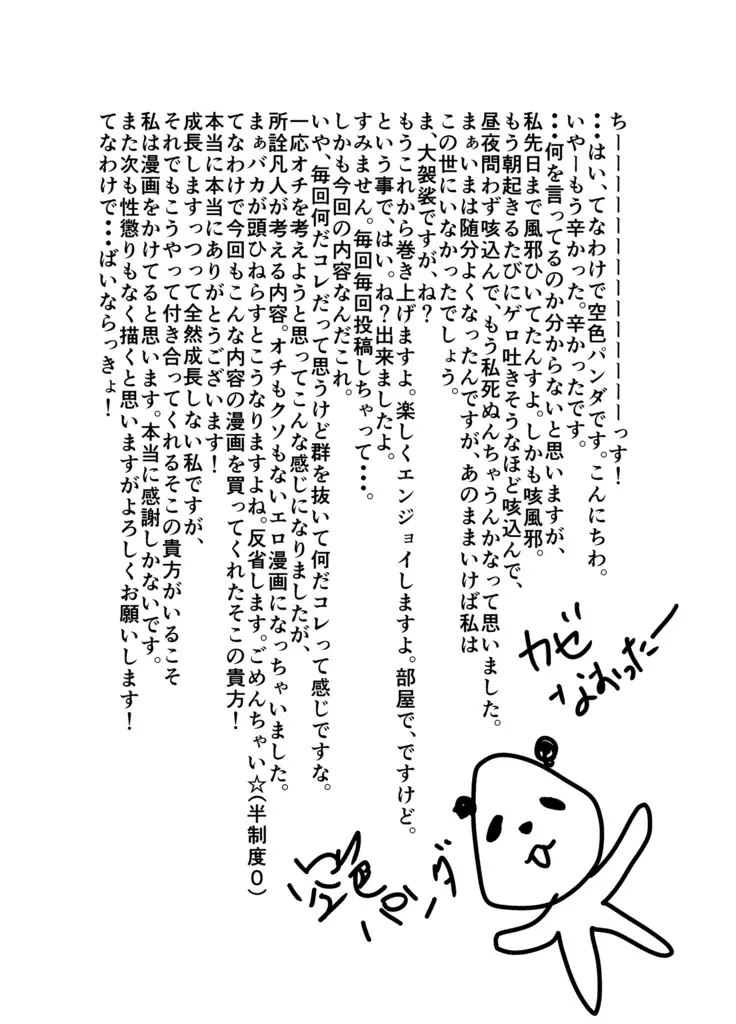 ちーーーーーーーーーーーーーーっす！
・・・はい、てなわけで空色パンダです。こんにちわ。
いやーもう辛かった。辛かったです。
・・・何を言ってるのか分からないと思いますが、
私先日まで風邪ひいてたんすよ。しかも咳風邪。
もう朝起きるたびにゲロ吐きそうなほど咳込んで、
昼夜問わず咳込んで、もう私死ぬんちゃうんかなって思いました。
まぁいまは随分よくなったんですが、あのままいけば私は
この世にいなかったでしょう。
ま、大袈裟ですが、ね？
もうこれから巻き上げますよ。楽しくエンジョイしますよ。部屋で、ですけど。
という事で、はい。ね？出来ましたよ。
すみません。毎回毎回投稿しちゃって・・・。
しかも今回の内容なんだこれ。
いや、毎回何だコレだって思うけど群を抜いて何だコレって感じですな。
一応オチを考えようと思ってこんな感じになりましたが、
所詮凡人が考える内容。オチもクソもないエロ漫画になっちゃいました。
まぁバカが頭ひねらすとこうなりますよね。反省します。ごめんちゃい☆（半制度０）
てなわけで今回もこんな内容の漫画を買ってくれたそこの貴方！
本当に本当にありがとうございます！
成長しますっつって全然成長しない私ですが、
それでもこうやって付き合ってくれるそこの貴方がいるこそ
私は漫画をかけてると思います。本当に感謝しかないです。
また次も性懲りもなく描くと思いますがよろしくお願いします！
てなわけで・・・ばいならっきょ！
カゼ
なおったー
空色
パンダ